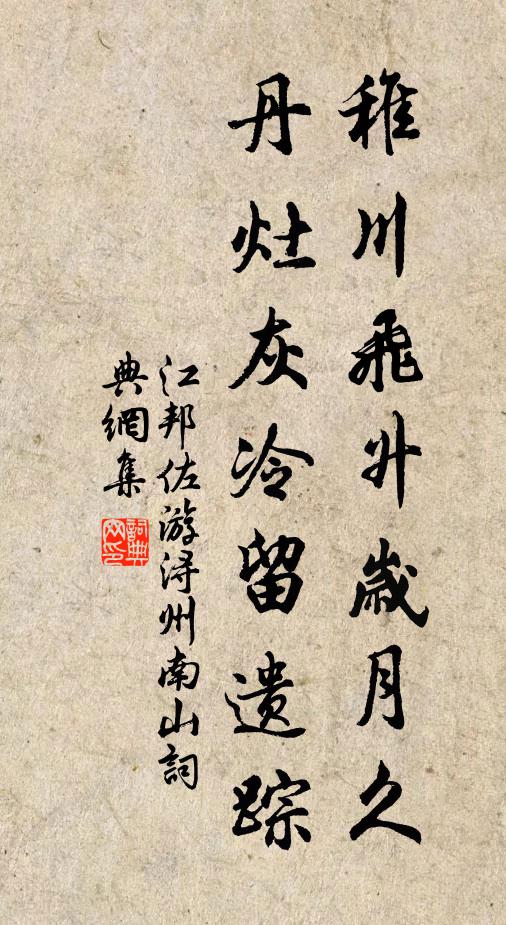 稚川飛升歲月久
丹灶灰冷留遺踪
江邦佐游潯州南山詞
典網集
詞典網印